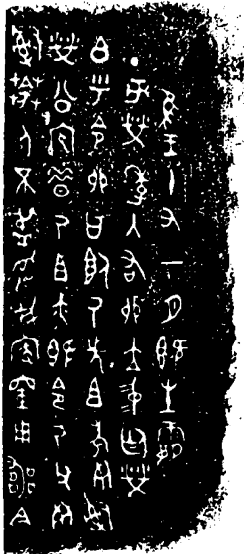 隹王十又一月既生霸
亥榮季入右卯立中廷榮
白乎令卯曰𩛥乃先且考死𤔲
榮公室昔乃且亦既令乃父死
𤔲人不盄取我家用喪今